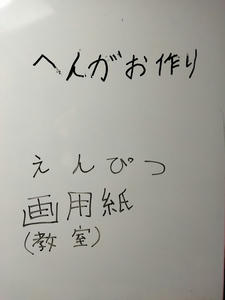 へんがお作り
えんぴつ
画用紙
(教室)